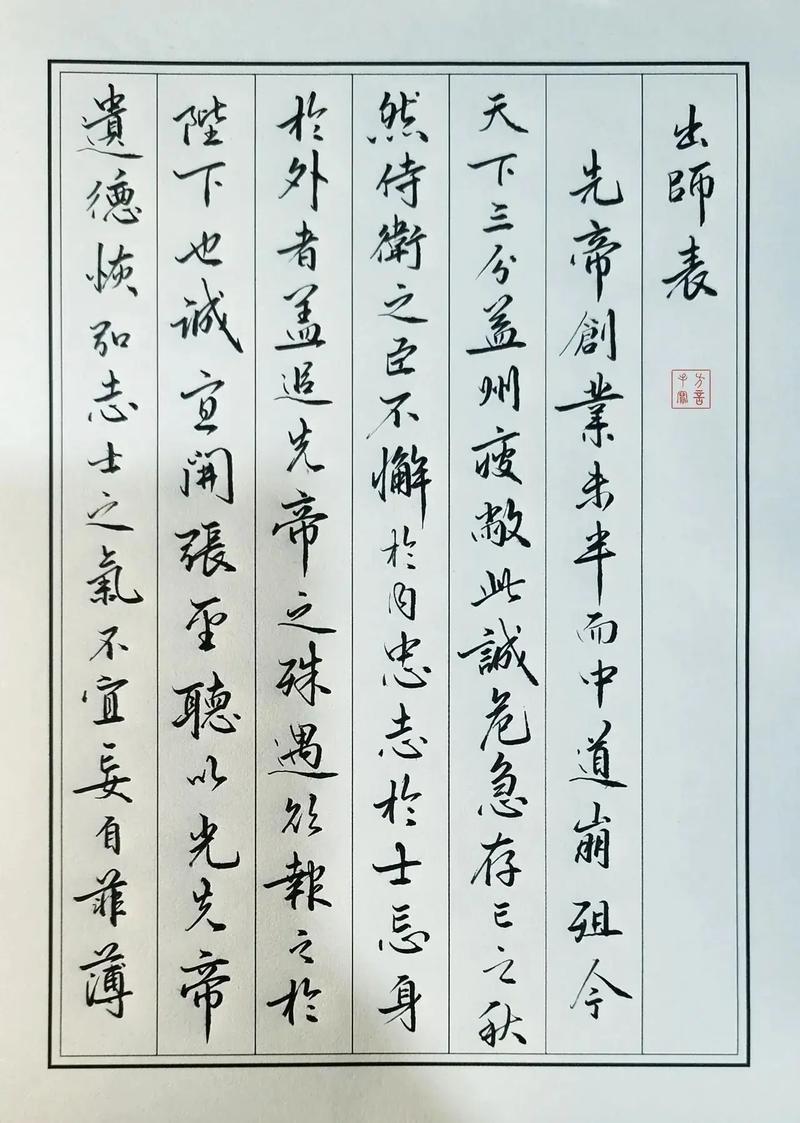 出師表
先帝創業未半而中道崩殂今
天下三分益州疲敝此誠危急存亡之秋
然侍衛之臣不懈於內忠志於士忘身
於外者盖追先帝之殊遇欲報之於
陛下也誠宜開張聖聽以光先帝
遺德恢弘志士之氣不宜妄自菲薄